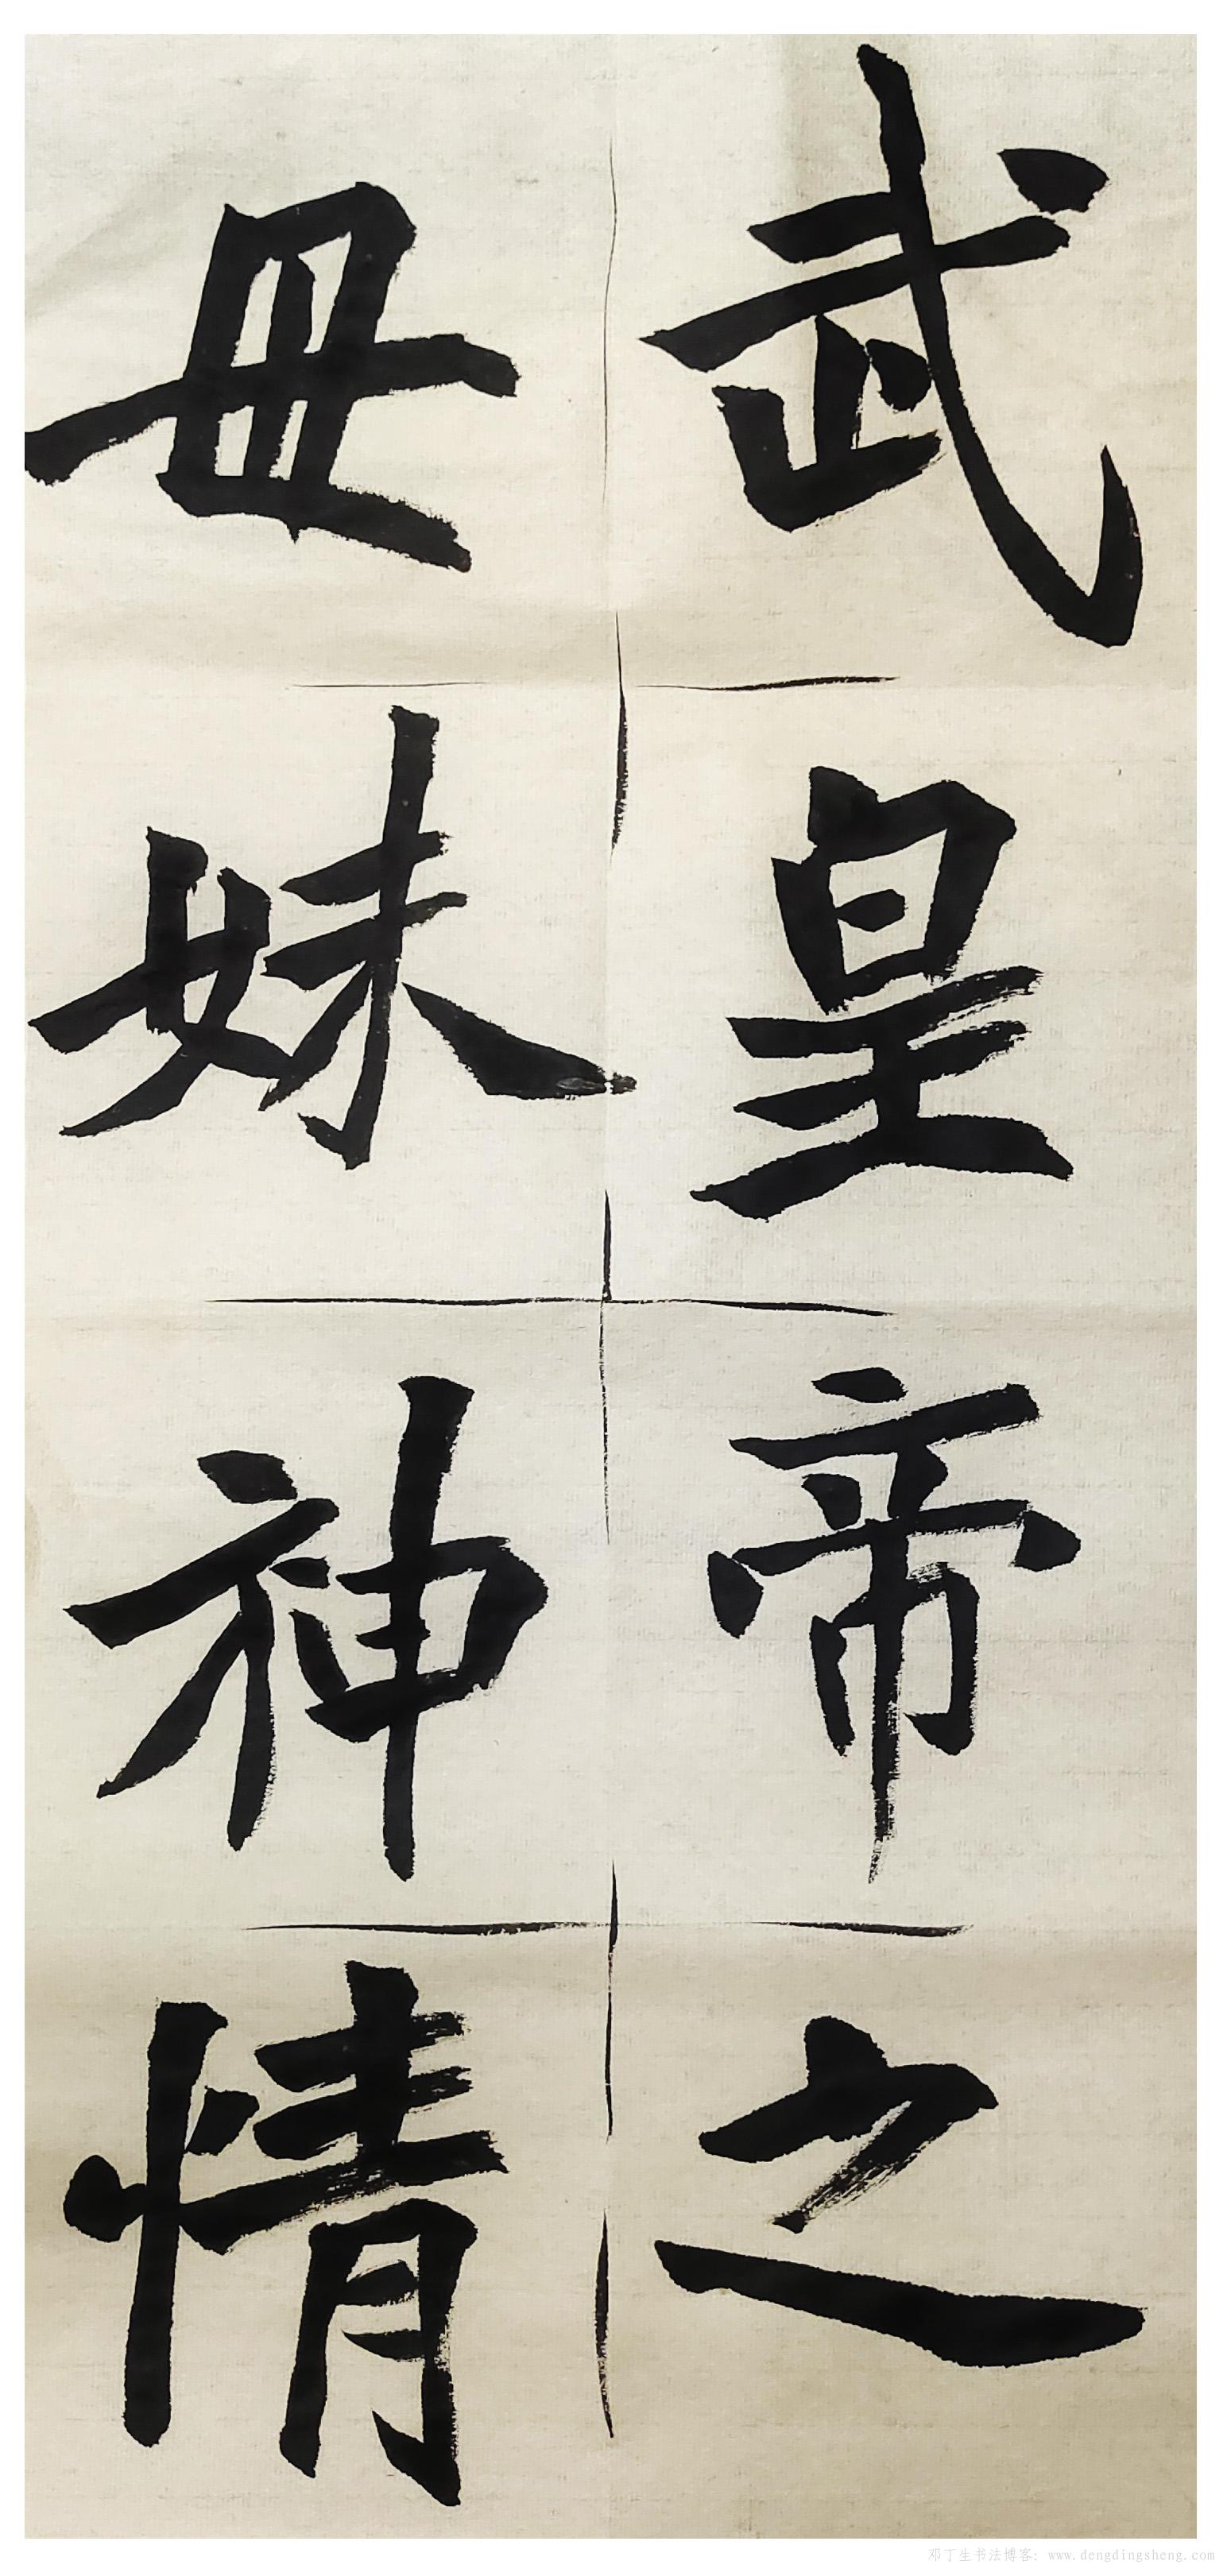 武皇帝之
母妹神情
邓丁生书法博客: www.dengdingsheng.com